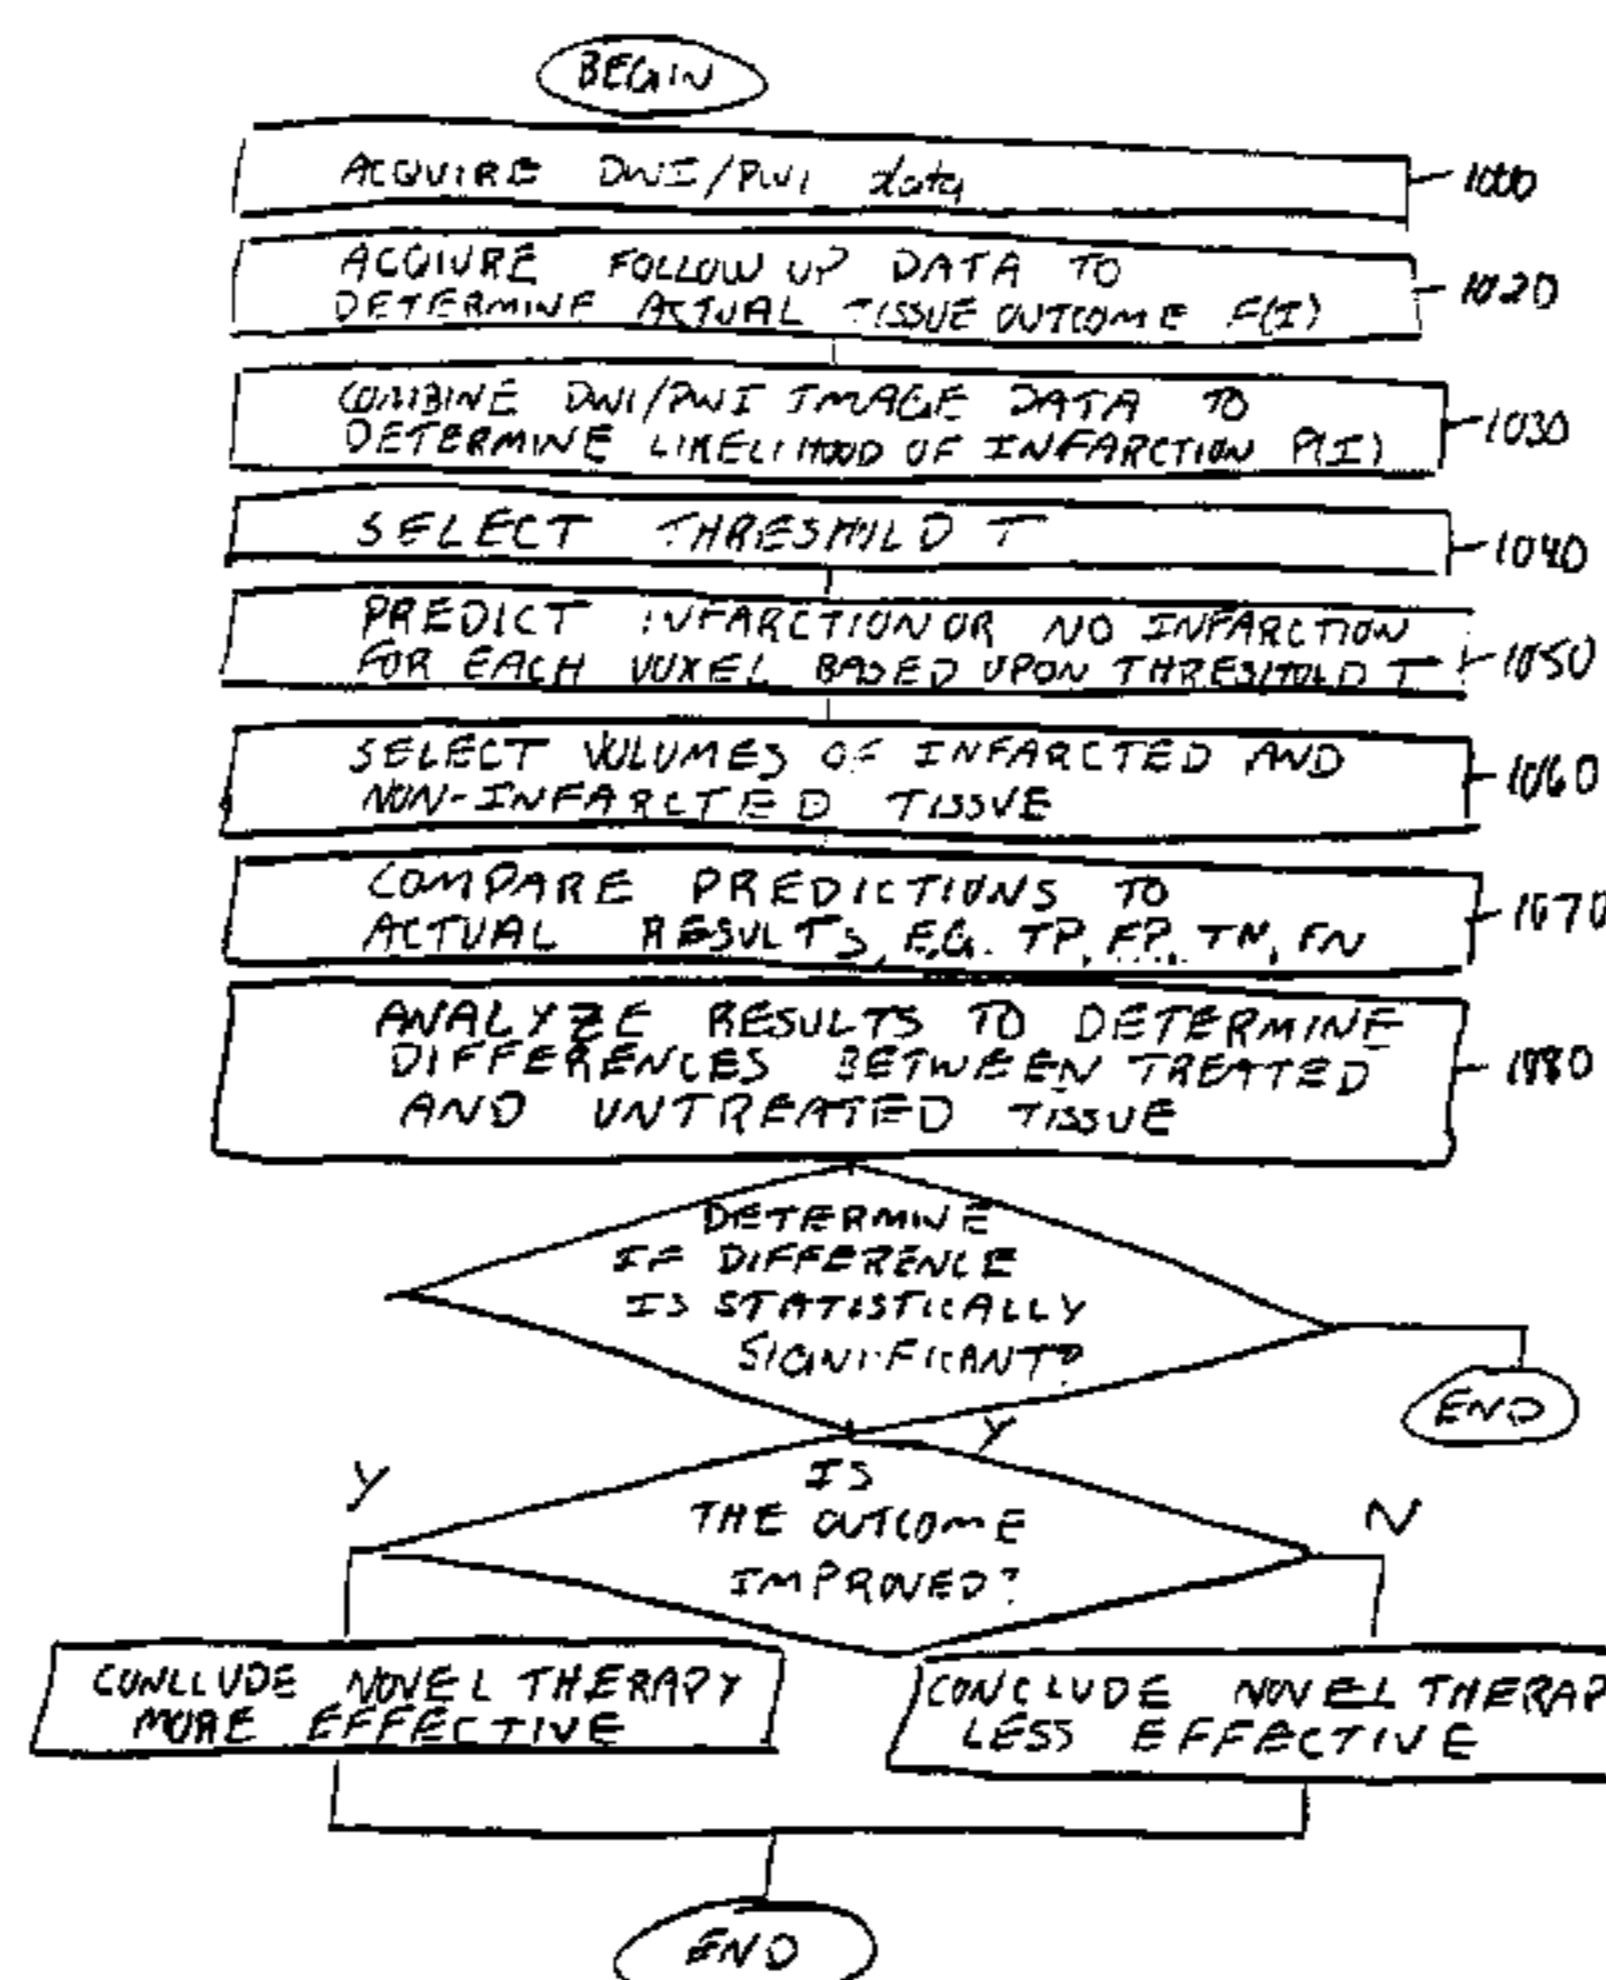 BEGIN
ACQUIRE DWI/PWI data
1000
ACQIURE FOLLOW UP DATA TO
DETERMINE ACTUAL TISSUE OUTCOME F(I)
1020
COMBINE DWI/PWI IMAGE DATA TO
DETERMINE LIKELIHOOD OF INFARCTION P(I)
1030
SELECT THRESHOLD T
1040
PREDICT INFARCTION OR NO INFARCTION
FOR EACH VOXEL BASED UPON THRESHOLD T
1050
SELECT VOLUMES OF INFARCTED AND
NON-INFARCTED TISSUE
1060
COMPARE PREDICTIONS TO
ACTUAL RESULTS, E.G. TP, FP, TN, FN
1070
ANALYZE RESULTS TO DETERMINE
DIFFERENCES BETWEEN TREATED
AND UNTREATED TISSUE
1080
DETERMINE
IF DIFFERENCE
IS STATISTICALLY
SIGNIFICANT?
END
Y
IS
THE OUTCOME
IMPROVED?
Y
N
CONCLUDE NOVEL THERAPY
MORE EFFECTIVE
CONCLUDE NOVEL THERAP
LESS EFFECTIVE
END